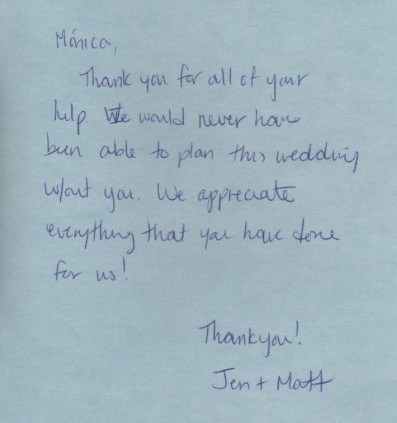 Mónica,
Thank you for all of your
help We would never have
been able to plan this wedding
w/out you. We appreciate
everything that you have done
for us!
Thank you!
Jen + Matt